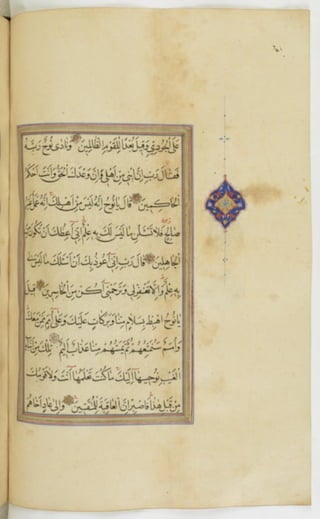 على الجودي وقيل بعدا للقوم الظالمين ونادى نوح ربه
فقال رب ان ابني من اهلي وان وعدك الحق وانت احكم
الحاكمين قال يا نوح انه ليس من اهلك انه عمل غير
صالح فلا تسئلن ما ليس لك به علم اني اعظك ان تكون من
الجاهلين قال رب اني اعوذ بك ان اسئلك ما ليس لي
به علم والا تغفر لي وترحمني اكن من الخاسرين قيل
يا نوح اهبط بسلام منا وبركات عليك وعلى امم ممن معك
وامم سنمتعهم ثم يمسهم منا عذاب اليم تلك من انباء
الغيب نوحيها اليك ما كنت تعلمها انت ولا قومك
من قبل هذا فاصبر ان العاقبة للمتقين والى عاد اخاهم